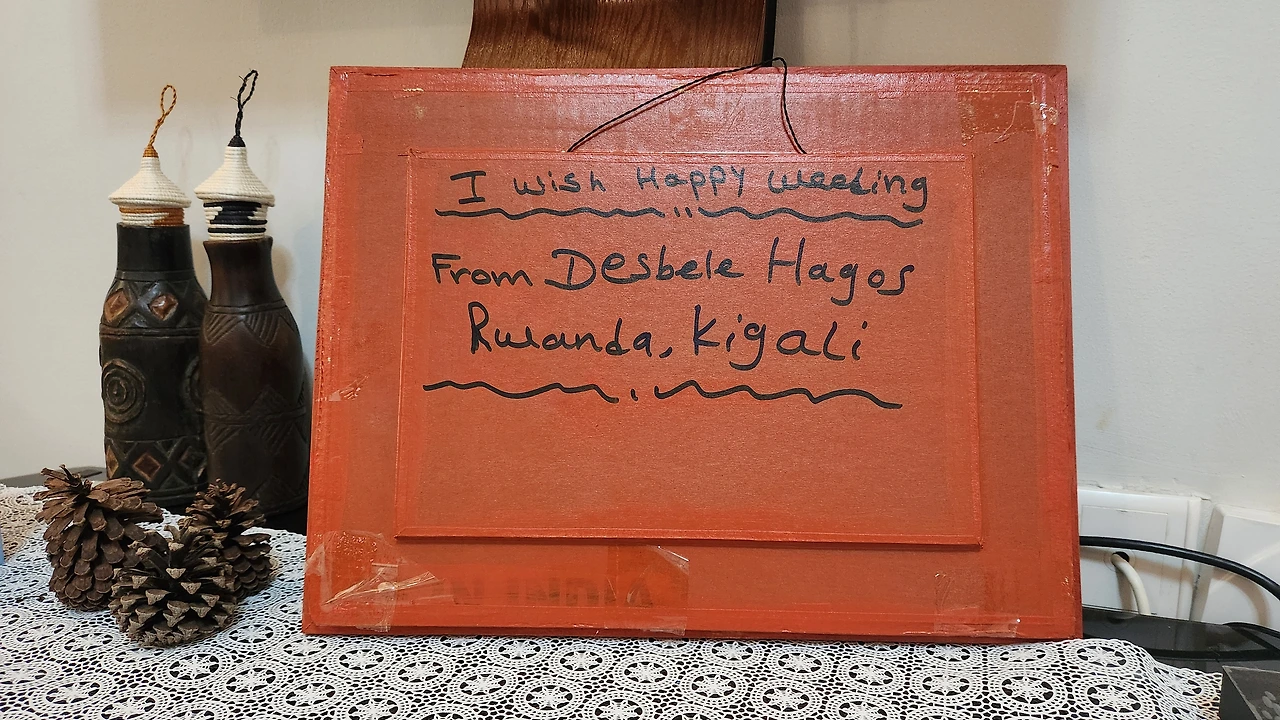 I wish Happy weeding
From Desbele Hagos
Rwanda, Kigali